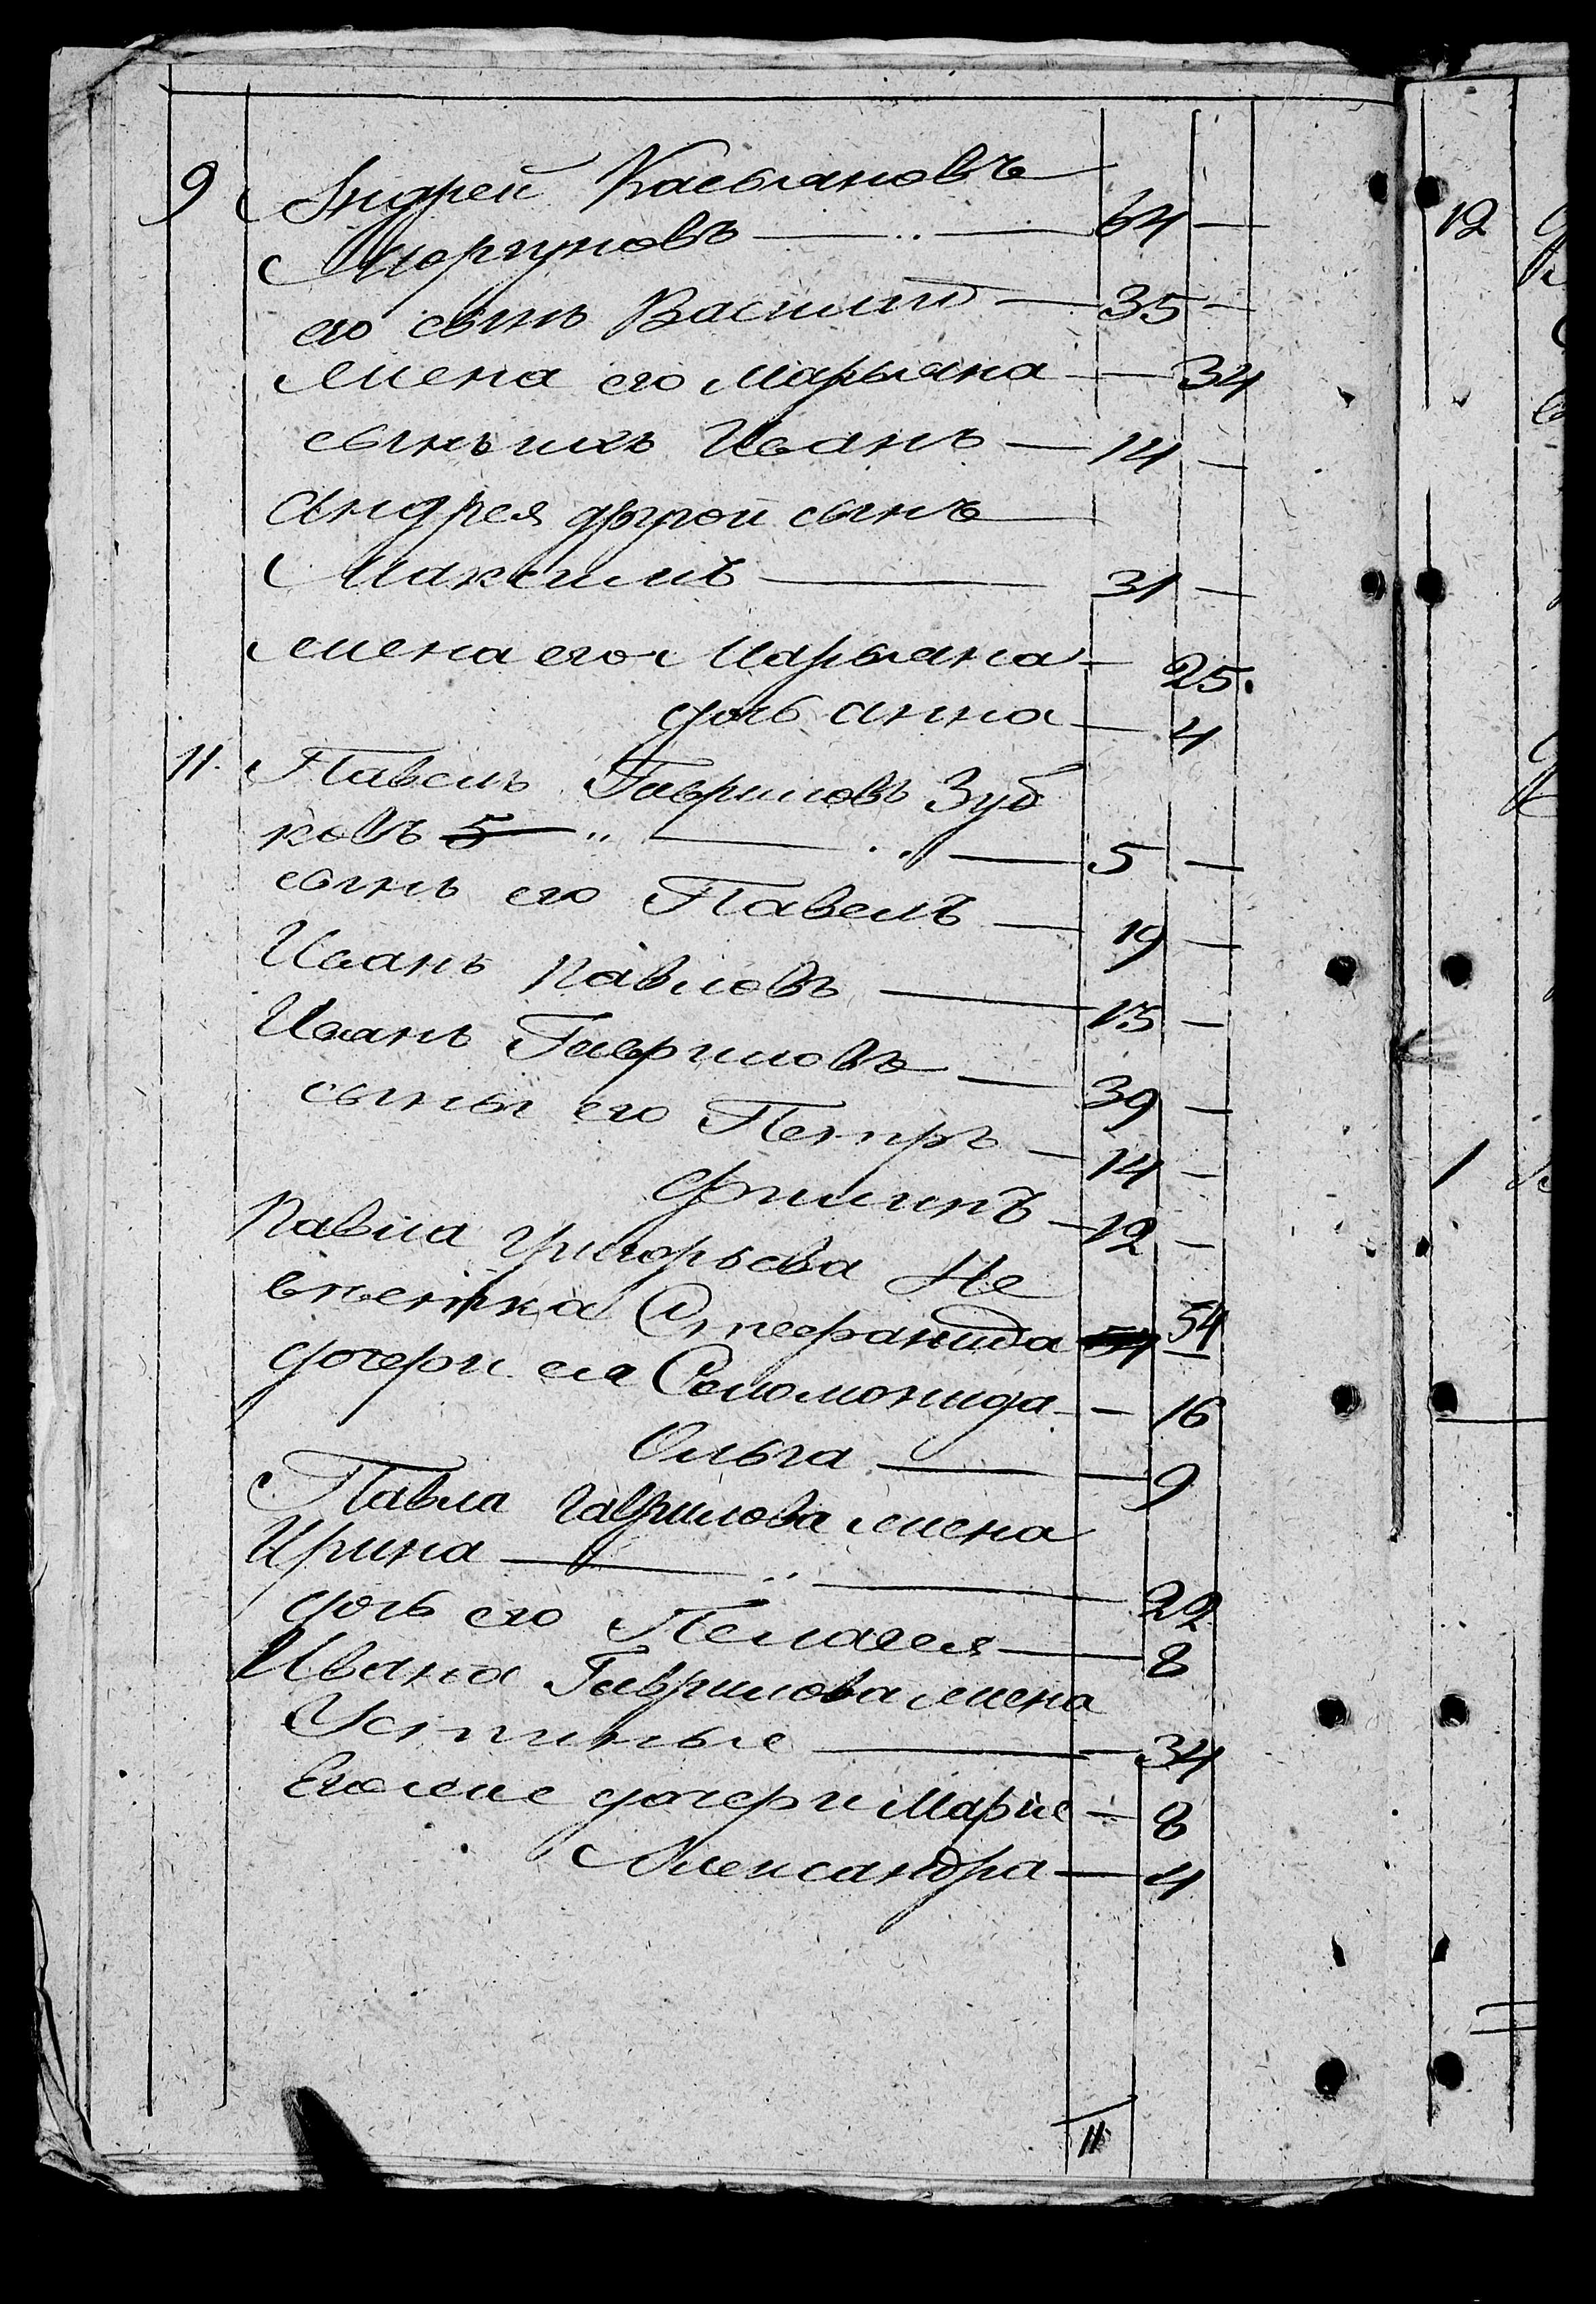 9 Андрей Касьяновъ
Моргуновъ — 64 —
его сынъ Василий — 35 —
жена его Марьяна — 34
сынъ ихъ Иванъ — 14 —
Андрея другой сынъ
Максимъ — 31 —
жена его Марьяна — 25.
дочь анна — 4
11. Павелъ Гавриловъ Зуб
ковъ 5 — 5 —
сынъ его Павелъ — 19 —
Иванъ Павловъ — 15 —
Иванъ Гавриловъ — 39 —
сыны его Петръ — 14 —
Филипъ — 12 —
Павла Григорьева Не
вѣстка Стефанида 54 54
дочери ея Соломонида — 16
Ольга — 9
Павла Гаврилова жена
Ирина — 22
дочь его Пелагея — 8
Ивана Гаврилова жена
Устинье — 34
Его же дочери Марие — 8
Александра — 4
11
12
1